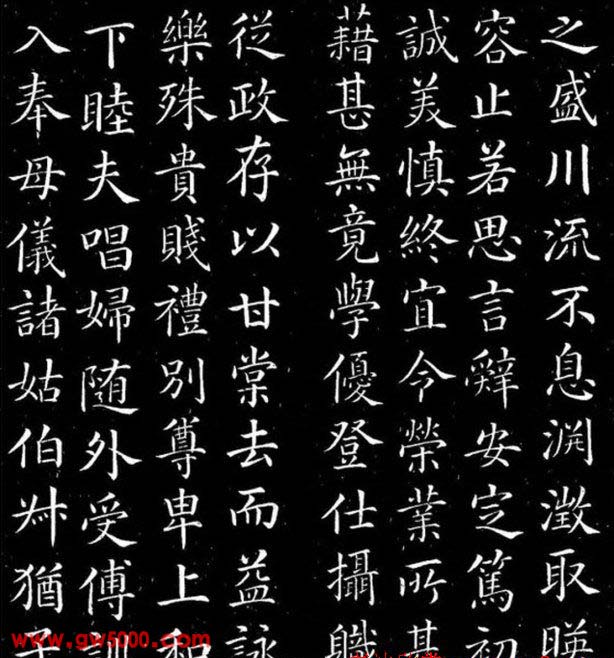 之盛川流不息渊澂取暎
容止若思言辤安定篤初
誠美慎終宜令榮業所基
藉甚無竟學優登仕攝職
從政存以甘棠去而益詠
樂殊貴賤禮別尊卑上和
下睦夫唱婦随外受傅訓
入奉母儀諸姑伯叔猶子
www.gw5000.com